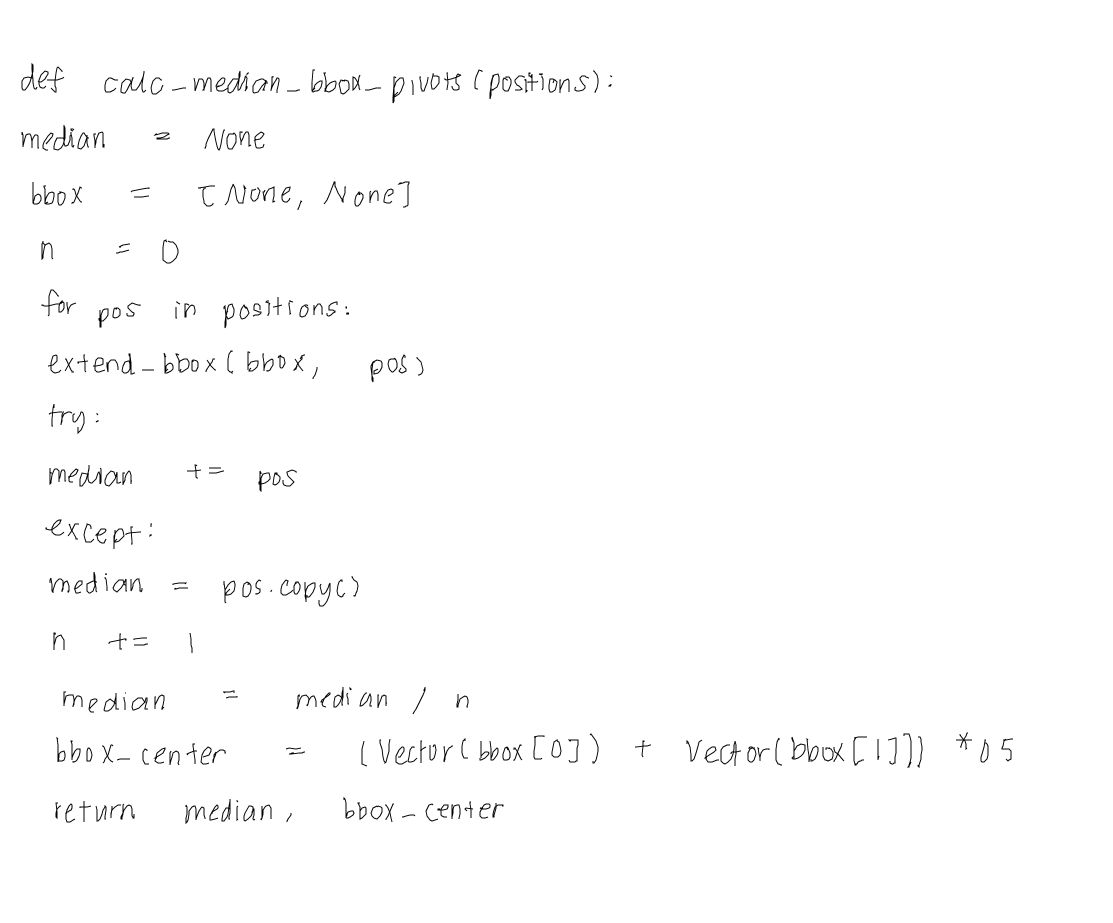 def calc_median_bbox_pivots(positions):
median = None
bbox = [None, None]
n = 0
for pos in positions:
extend_bbox(bbox, pos)
try:
median += pos
except:
median = pos.copy()
n += 1
median = median / n
bbox_center = (Vector(bbox[0]) + Vector(bbox[1])) *05
return median, bbox_center